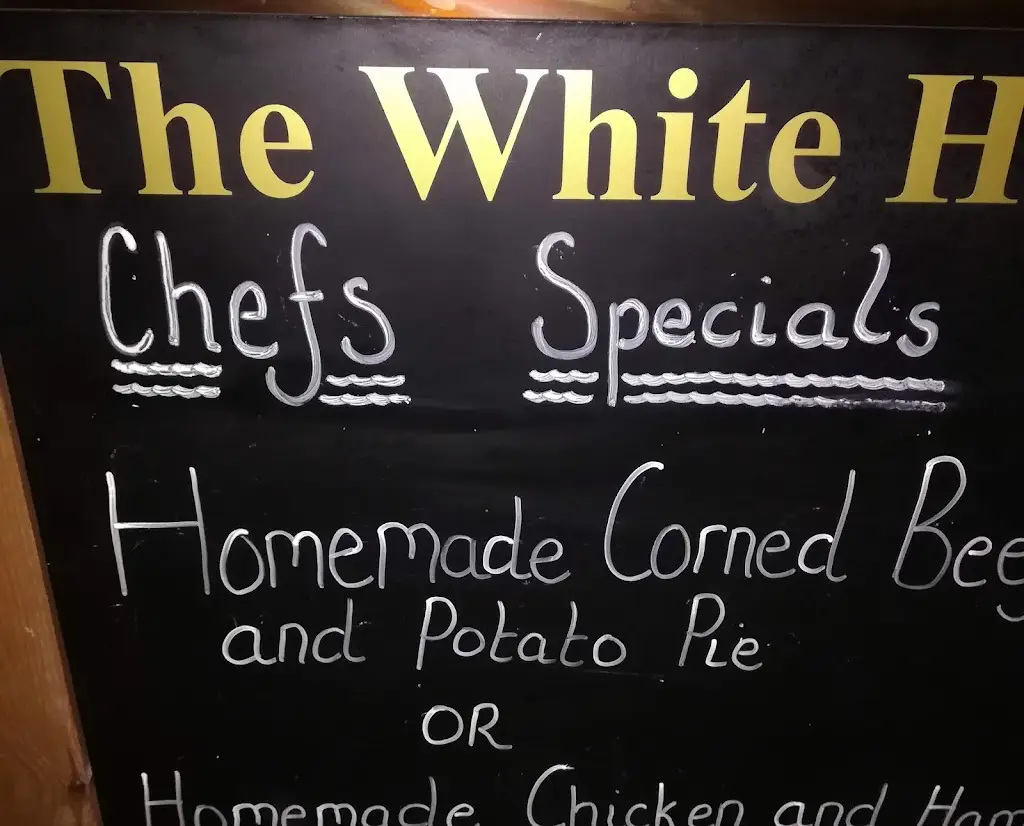 The White H
Chefs Specials
Homemade Corned Bee
and Potato Pie
OR
Homemade Chicken and Ham